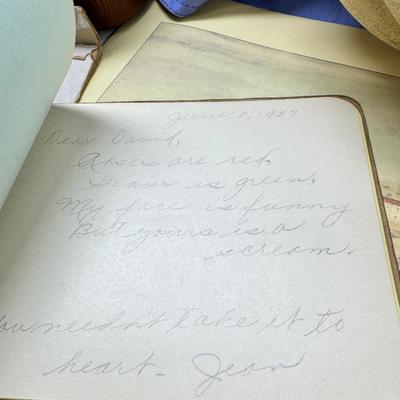 June 8, 1927
Dear David,
Roses are red,
Grass is green,
My face is funny
But yours is a
scream.
You needn't take it to
heart - Jean